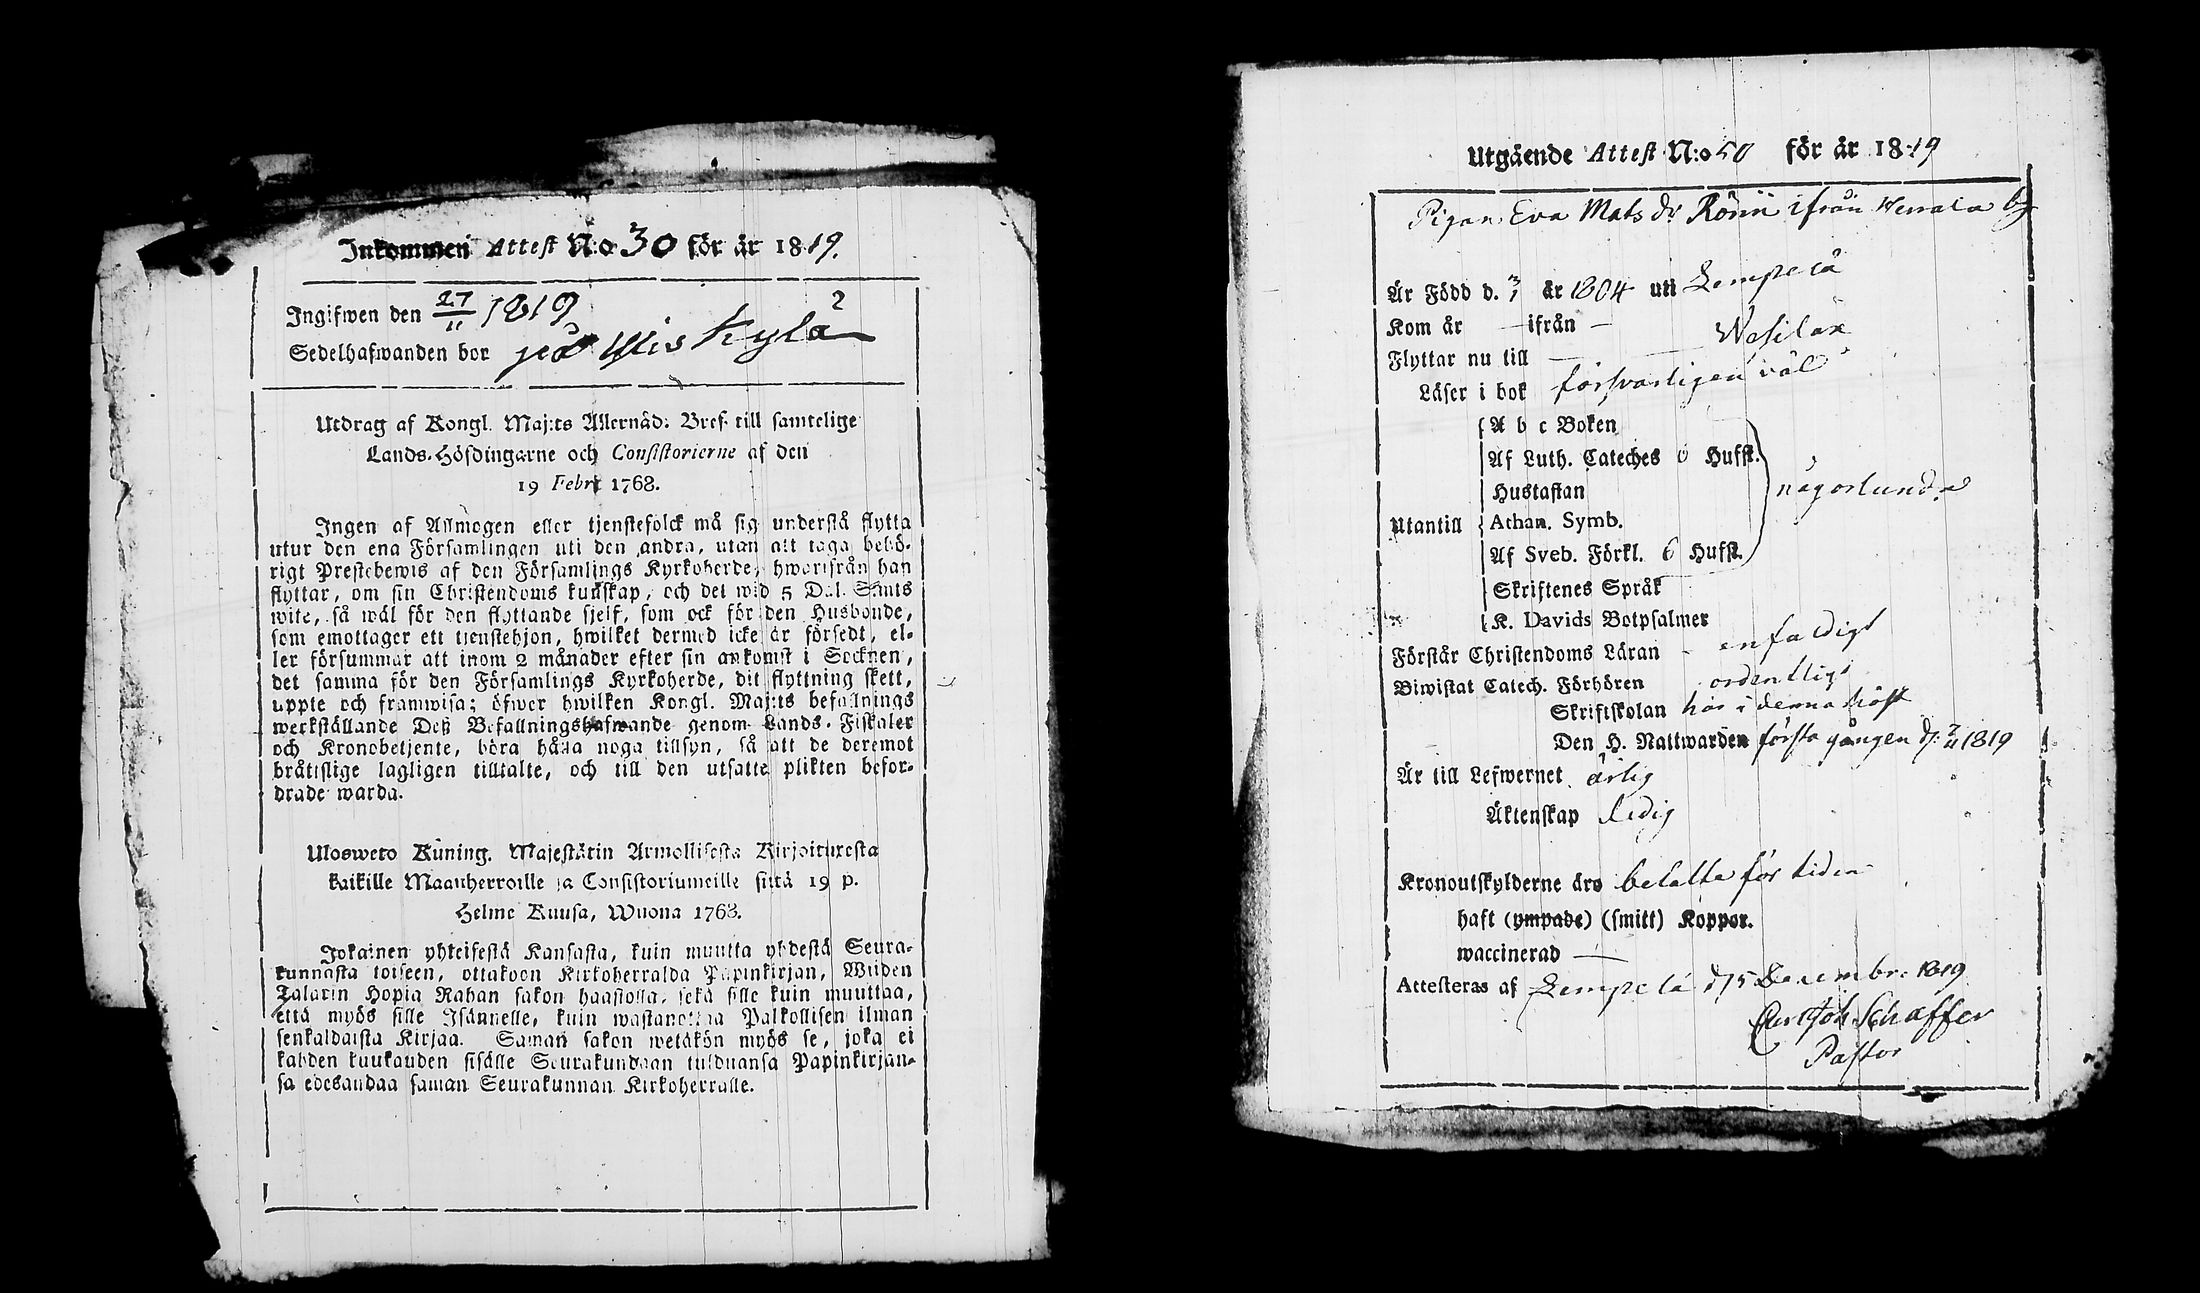 Inkommen Attest N:o 30 för år 1819.
Ingifwen den 27/11 1819
Sedelhafwanden bor på Yliskylä 2
Utdrag af Kongl. Maj:ts Allernåd: Bref till samtelige
Lands-Höfdingarne och Consistorierne af den
19 Febr. 1768.
Ingen af Allmogen eller tjenstefolck må sig understå flytta
utur den ena Församlingen uti den andra, utan att taga behö-
rigt Prestebewis af den Församlings Kyrkoherde, hwarifrån han
flyttar, om sin Christendoms kunskap, och det wid 5 Dal. S:mts
wite, så wäl för den flyttande sjelf, som ock för den Husbonde,
som emottager ett tjenstehjon, hwilket dermed icke är försedt, el-
ler försummar att inom 2 månader efter sin ankomst i Socknen,
det samma för den Församlings Kyrkoherde, dit flyttning skett,
uppte och framwisa; öfwer hwilken Kongl. Maj:ts befallnings
werkställande Deß Befallningshafwande genom Lands-Fiskaler
och Kronobetjente, böra hålla noga tillsyn, så att de deremot
bråttslige lagligen tilltalte, och till den utsatte plikten befor-
drade warda.
Ulosweto Kuning. Majestätin Armollisesta Kirjoituresta
kaikille Maanherroille ja Consistoriumeille siitä 19 p.
Helme Kuusa, Wuona 1768.
Jokainen yhteisestä Kansasta, kuin muutta yhdestä Seura-
kunnasta toiseen, ottakoon Kirkoherralda Papinkirjan, Wiiden
Talarin Hopia Rahan sakon haastolla, sekä sille kuin muuttaa,
että myös sille Isännelle, kuin wastanottaa Palkollisen ilman
senkaldaista Kirjaa. Saman sakon wetäkön myös se, joka ei
kahden kuukauden sisälle Seurakundaan tulduansa Papinkirjan-
sa edesandaa saman Seurakunnan Kirkoherralle.
Utgående Attest N:o 50 för år 1819
Pigan Eva Mats dr Rönni ifrån Herrala by
Är Född d. 3/1 år 1804 uti Lempelä
Kom år — ifrån —
Flyttar nu till — Wesilax
Läser i bok försvarligen väl
A b c Boken
Af Luth. Cateches 6 Hufst.
Hustaflan
någorlunda
Utantill Athan. Symb.
Af Sveb. Förkl. 6 Hufst.
Skriftenes Språk
K. Davids Botpsalmer
Förstår Christendoms Läran enfaldigt
Biwistat Catech. Förhören ordentligt
Skriftskolan här i denna höst
Den H. Nattwarden första gången d. 7/11 1819
Är till Lefwernet ärlig
Äktenskap Ledig
Kronoutskylderne äro betalte för tiden
haft (ympade) (smitt) Koppor.
waccinerad —
Attesteras af Lempelä d. 5 Decembr. 1819
Schaffer
Pastor